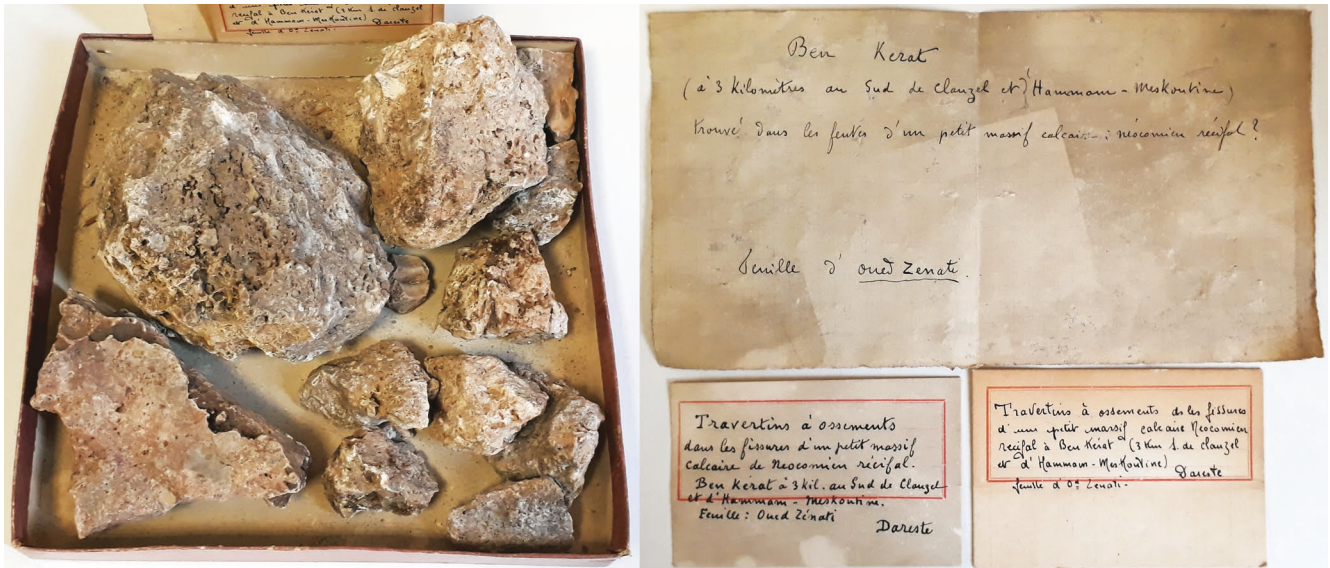 d'une petit
recifal à Ben Kérat (3 Km S. de clauzel
et d'Hammam-Meskoutine)
Dareste
feuille d'Od Zenati.
Ben Kerat
(à 3 Kilomètres au Sud de Clauzel et d'Hammam-Meskoutine)
trouvé dans les fentes d'un petit massif calcaire : néocomien récifal ?
Feuille d'oued Zenati.
Travertins à ossements
dans les fissures d'un petit massif
calcaire de Neocomien récifal.
Ben Kerat à 3 kil. au Sud de Clauzel
et d'Hammam-Meskoutine.
Feuille : Oued Zénati
Dareste
Travertins à ossements ds les fissures
d'une petit massif calcaire Neocomien
recifal à Ben Kérat (3 Km S. de clauzel
et d'Hammam-Meskoutine)
Dareste
feuille d'Od Zenati.